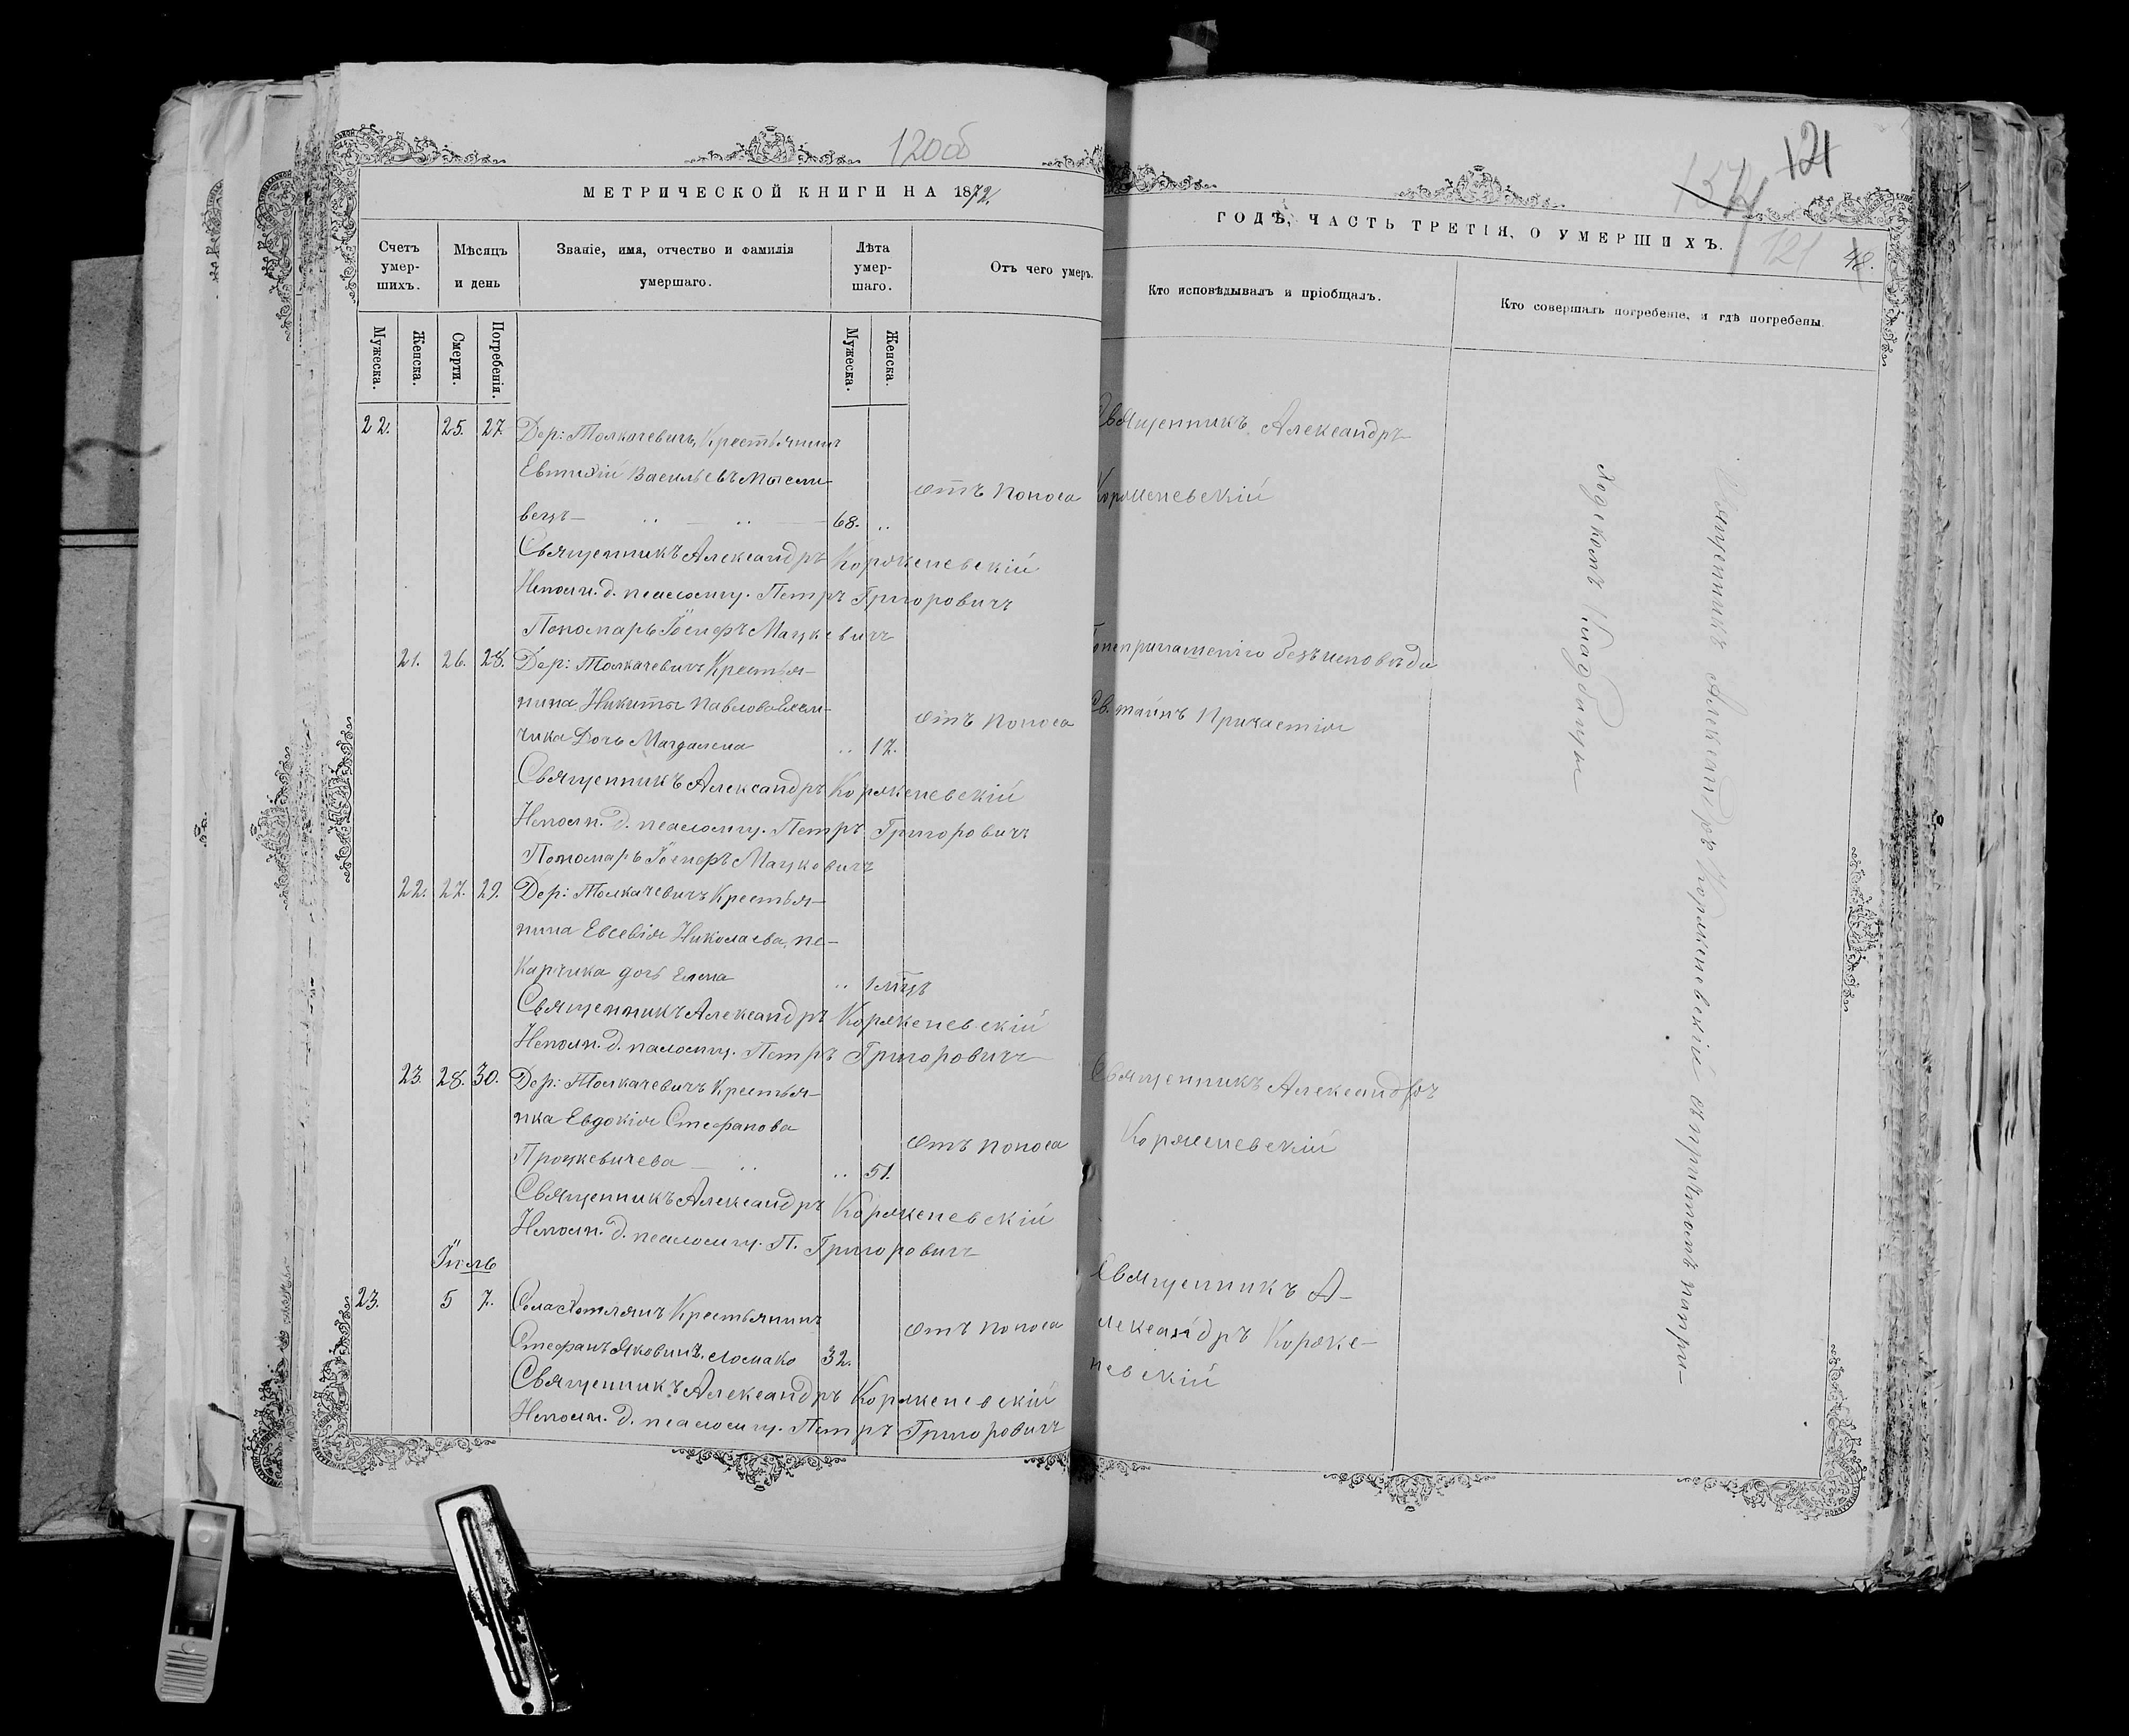 120об
МЕТРИЧЕСКОЙ КНИГИ НА 1872
Счетъ умер-шихъ.
Мѣсяцъ и день
Званіе, имя, отчество и фамилія умершаго.
Лѣта умер-шаго.
Отъ чего умеръ.
Мужеска.
Женска.
Смерти.
Погребенія.
Мужеска.
Женска.
22. 25. 27. Дер: Толкачевичъ, Крестьянинъ
Евтихій Васильевъ Мысли-
вецъ — 68.
отъ поноса
Священникъ Александръ Корженевскій
Исполн. д. псаломщ. Петръ Григоровичъ
Пономарь Іосифъ Мацкевичъ
21. 26. 28. Дер: Толкачевичъ Крестья-
нина Никиты Павлова
чика Дочь Магдалена 17.
отъ поноса
Священникъ Александръ Корженевскій
Исполн. д. псаломщ. Петръ Григоровичъ
Пономарь Іосифъ Мацкевичъ
22. 27. 29. Дер: Толкачевичъ Крестья-
нина Евсевія Николаева, пе-
карчика дочь Елена 1 мѣцъ
Священникъ Александръ Корженевскій
Исполн. д. псаломщ. Петръ Григоровичъ
23. 28. 30. Дер: Толкачевичъ Крестья-
нка Евдокія Стефанова
Процкевичева — 51.
отъ поноса
Священникъ Александръ Корженевскій
Исполн. д. псаломщ. П. Григоровичъ
Іюль
23. 5 7. Села Крестьянинъ
Стефанъ Яковинъ. Ломако 32.
отъ поноса
Священникъ Александръ Корженевскій
Исполн. д. псаломщ. Петръ Григоровичъ
121
121
48.
ГОДѢ, ЧАСТЬ ТРЕТІЯ, О УМЕРШИХЪ.
Кто исповѣдывалъ и пріобщалъ.
Кто совершалъ погребеніе, и гдѣ погребены.
Священникъ Александръ
Корженевскій
безъ исповѣди
Св. таинъ Причастія
Священникъ Александръ
Корженевскій
Священникъ А-
лександръ Корже-
невскій
Священникъ Александръ Корженевскій на приходскомъ
Кладбищѣ